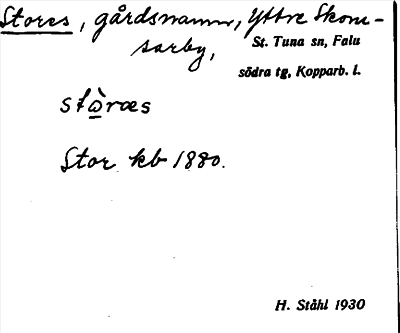 Stores, gårdsnamn, Yttre Skom-
sarby,
St. Tuna sn, Falu
södra tg, Kopparb. l.
stòræs
Stor kb 1880.
H. Ståhl 1930